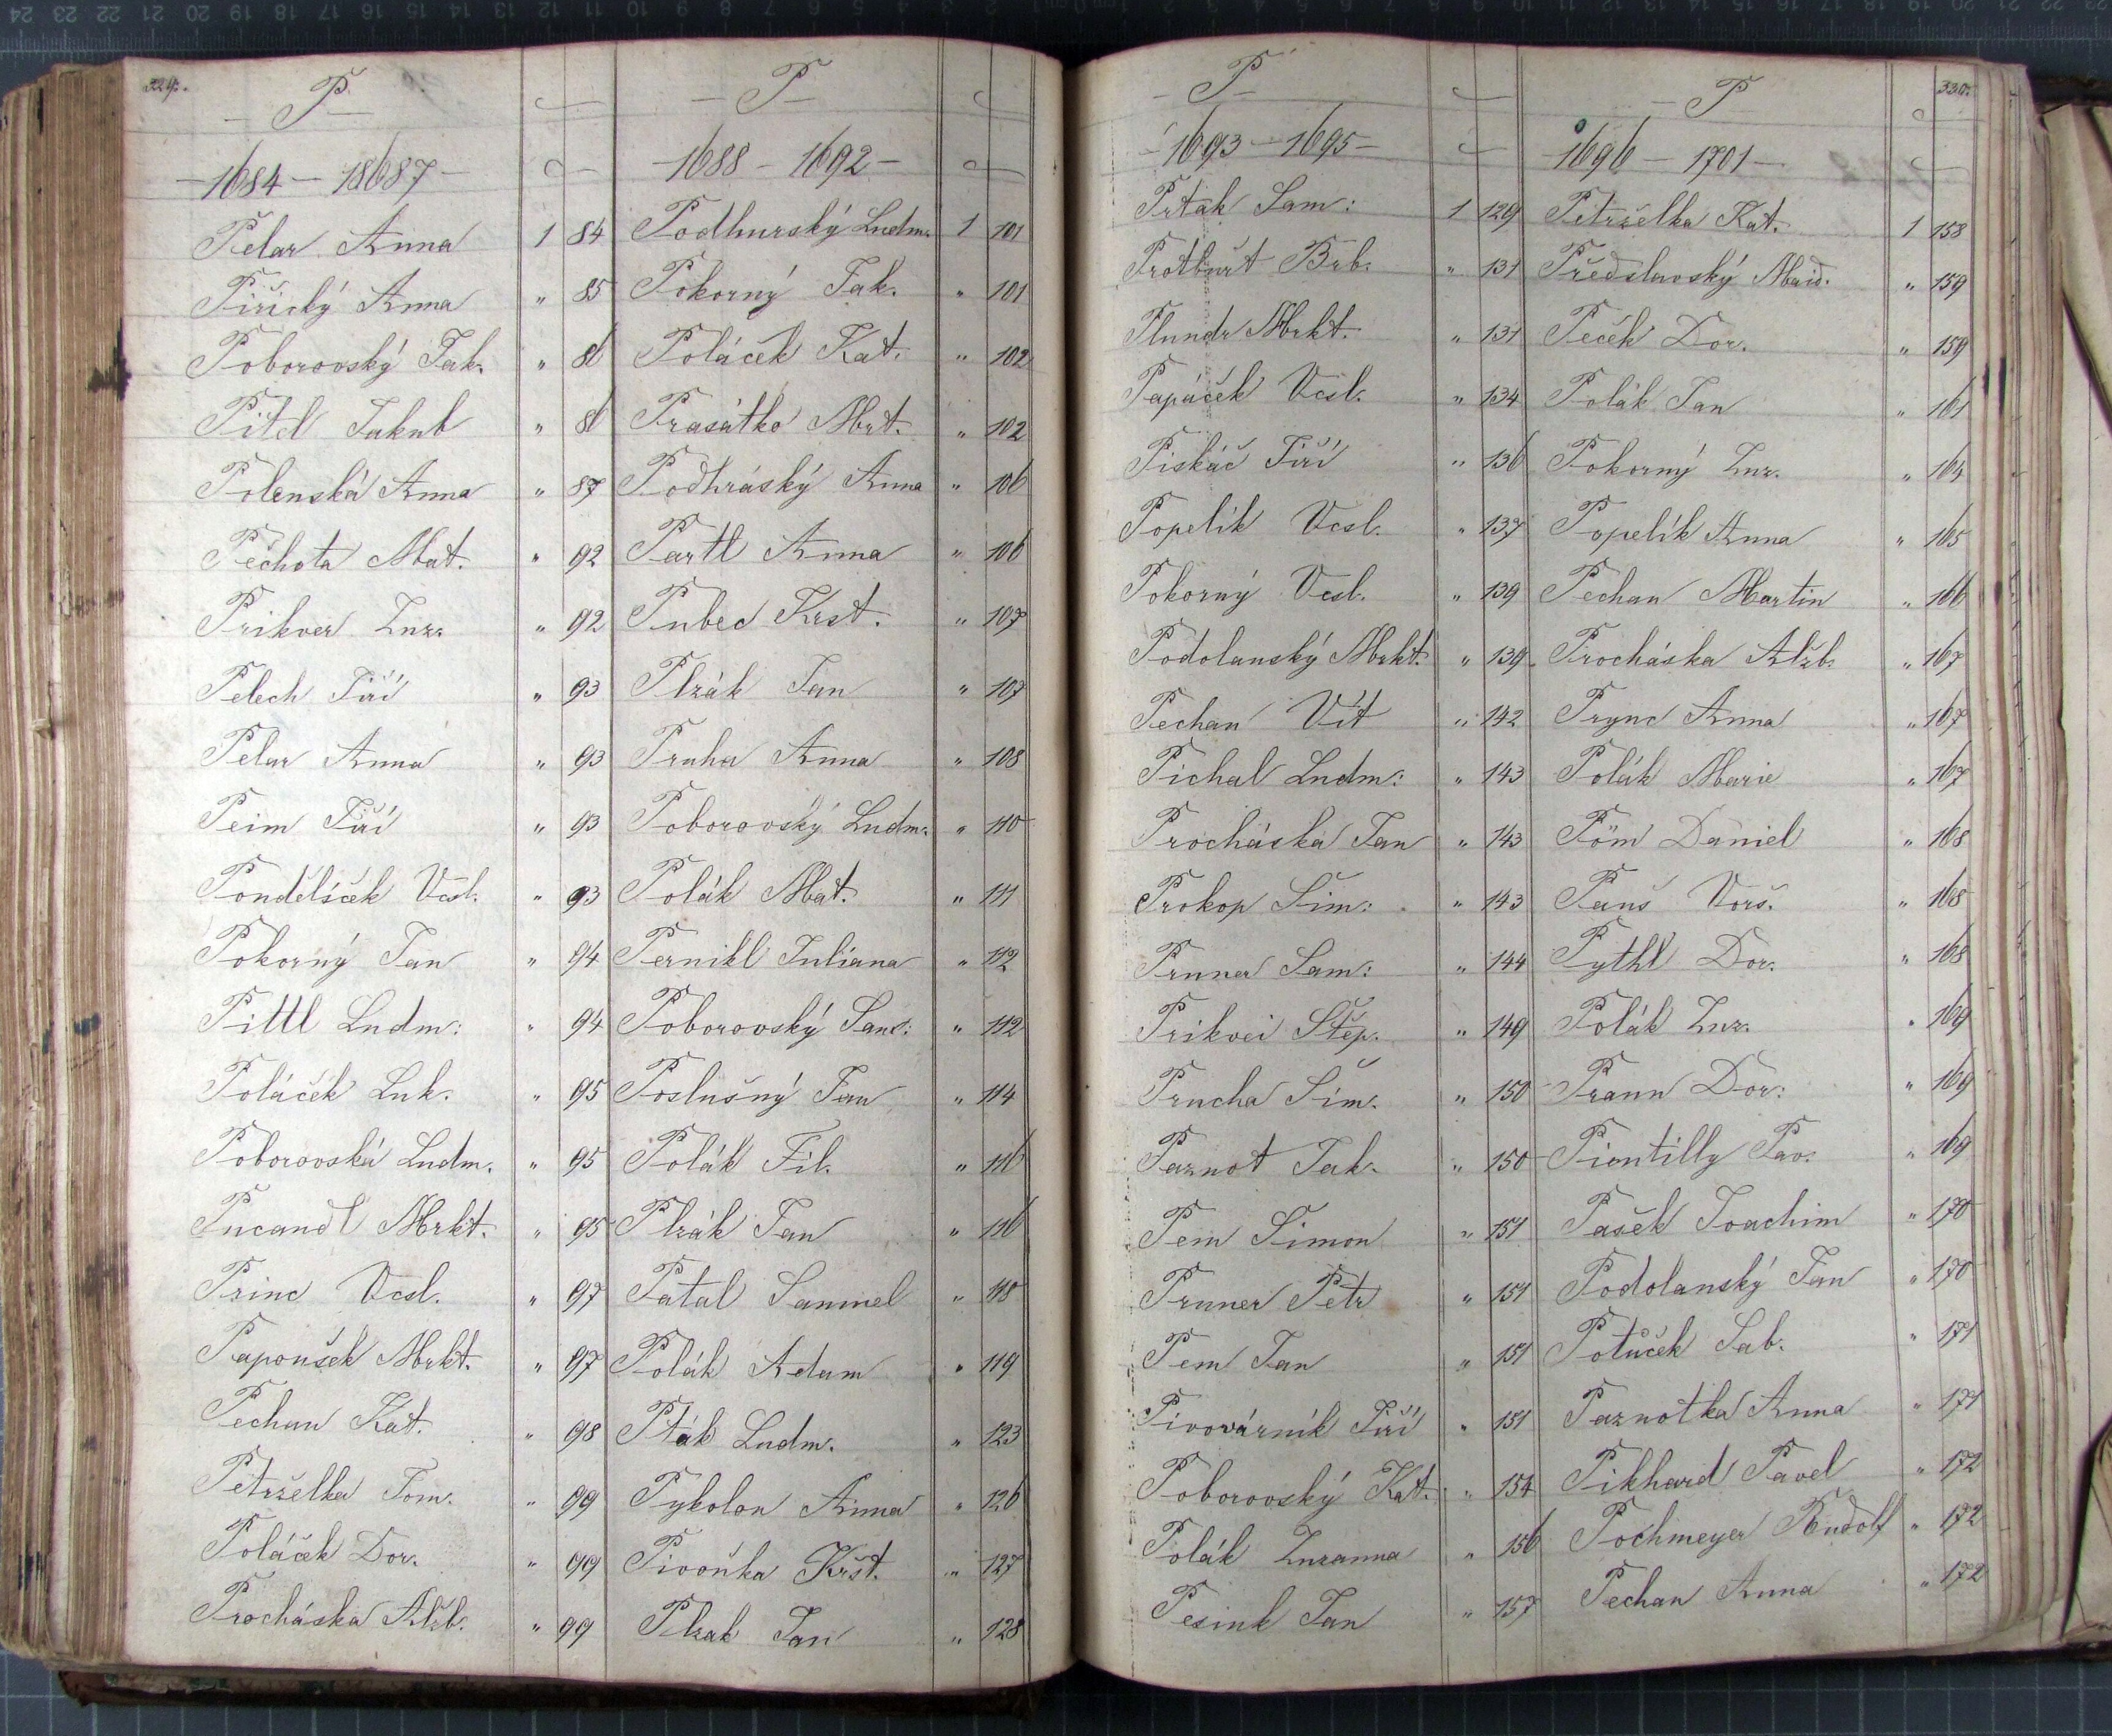 329.
P
1684 – 18687
Pelar Anna 1 84
Piřický Anna " 85
Poborovský Jak. " 86
Pitel Jakub " 86
Polenská Anna " 87
Pechota Mat. " 92
Prikver Zuz. " 92
Pelech Jiří " 93
Pelar Anna " 93
Peim Jiří " 93
Pondělíček Vcsl. " 93
Pokorný Jan " 94
Pittl Ludm: " 94
Poláček Luk. " 95
Poborovská Ludm. " 95
Pucandl Mrkt. " 95
Princ Vcsl. " 97
Papoušek Mrkt. " 97
Pechan Kat. " 98
Petrželka Tom. " 99
Poláček Dor. " 99
Procháska Alžb. " 99
P
1688 – 1692
Podhurský Ludm. 1 101
Pokorný Jak. " 101
Poláček Kat. " 102
Prasátko Mrt. " 102
Podhráský Anna " 106
Partl Anna " 106
Pubec Krst. " 107
Plzák Jan " 107
Pruha Anna " 108
Poborovský Ludm. " 110
Polák Mat. " 111
Pernikl Juliana " 112
Poborovský Sam: " 112
Poslušný Jan " 114
Polák Fil. " 116
Plzák Jan " 116
Patal Samuel " 118
Polák Adam " 119
Pták Ludm. " 123
Pykolon Anna " 126
Pivoňka Kršt. " 127
Plzak Jan " 128
P
1693 – 1695
Prtak Sam: 1 129
Protburt Brb. " 131
Plundr Mrkt. " 131
Papáček Vcsl. " 134
Piskáč Jiří " 136
Popelík Vcsl. " 137
Pokorný Vcsl. " 139
Podolanský Mrkt. " 139
Pechan Vít " 142
Pichal Ludm: " 143
Procháska Jan " 143
Prokop Šim: " 143
Pruner Sam: " 144
Prikvei Štěp. " 149
Prucha Šim. " 150
Paznot Jak. " 150
Pem Šimon " 151
Pruner Petr " 151
Pem Jan " 151
Pivovárník Jiří " 151
Poborovský Kat. " 154
Polák Zuzanna " 156
Pesink Jan " 157
330.
P
1696 – 1701
Petrželka Kat. 1 158
Předslavský " 159
Peček Dor. " 159
Polák Jan " 161
Pokorný Zuz. " 164
Popelík Anna " 165
Pechan Martin " 166
Procháska Alžb. " 167
Prync Anna " 167
Polák Marie " 167
Pöm Daniel " 168
Pauš Vorš. " 168
Pythl Dor. " 168
Polák Zuz. " 169
Prann Dor: " 169
Pientilly Pav. " 169
Pašek Joachim " 170
Podolanský Jan " 170
Potůček Sab. " 171
Paznotka Anna " 171
Pikhard Pavel " 172
Pochmeyer Rudolf " 172
Pechan Anna " 172